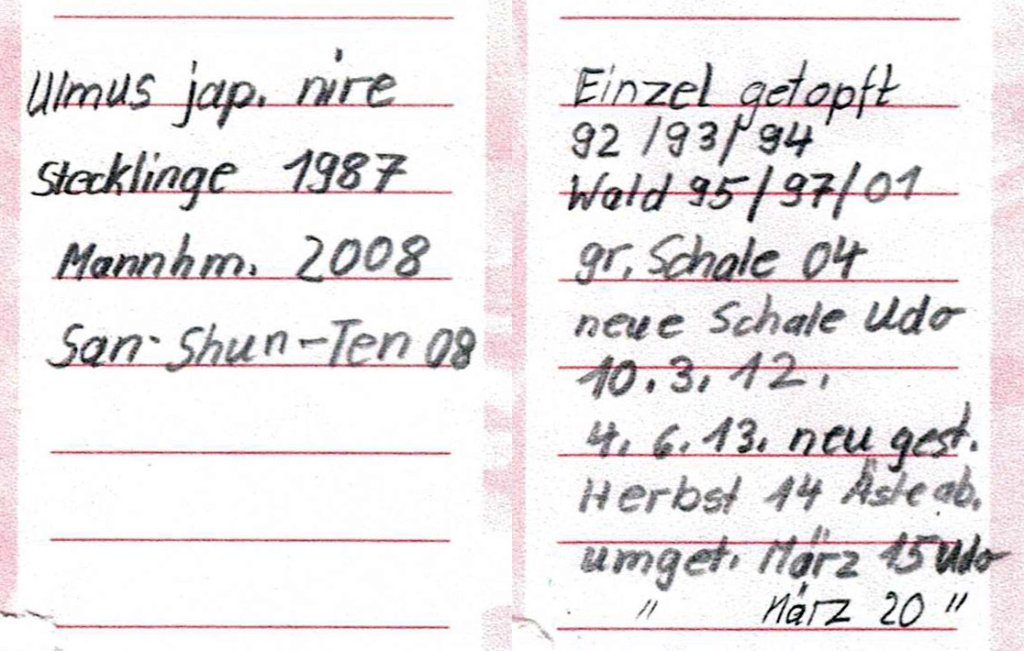 Ulmus jap. nire
Stecklinge 1987
Mannhm. 2008
San-Shun-Ten 08
Einzel getopft
92 /93/ 94
Wald 95/97/01
gr. Schale 04
neue Schale Udo
10.3.12.
4.6.13. neu gest.
Herbst 14 Äste ab.
umget. März 15 Udo
" März 20 "